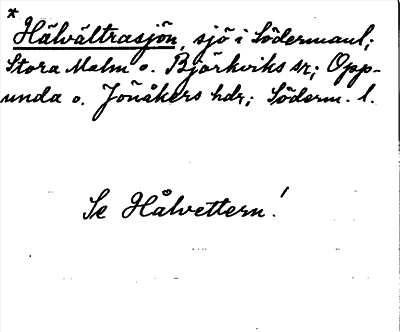 *
Hälvältrasjön, sjö i Södermanl;
Stora Malm o. Björkviks sr; Opp-
unda o. Jönåkers hdr; Söderm. l.
Se Hålvettern!